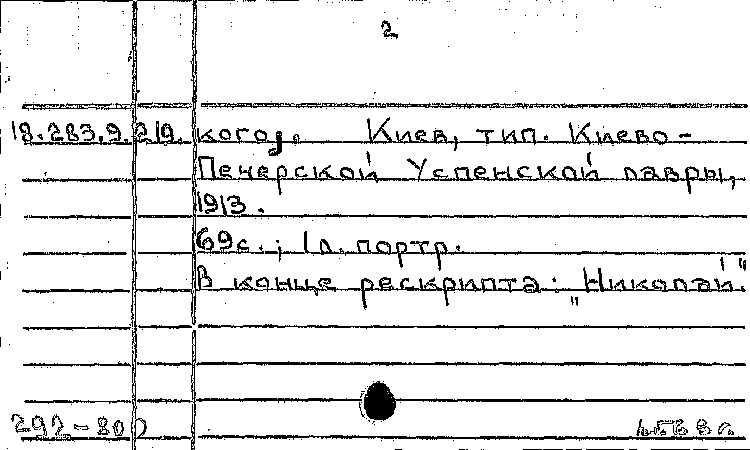 2
18.283.9.219. кого]. Киев, тип. Киево-
Печерской Успенской лавры,
1913.
69с.; 1л. портр.
В конце рескрипта: „Николай".
292-800